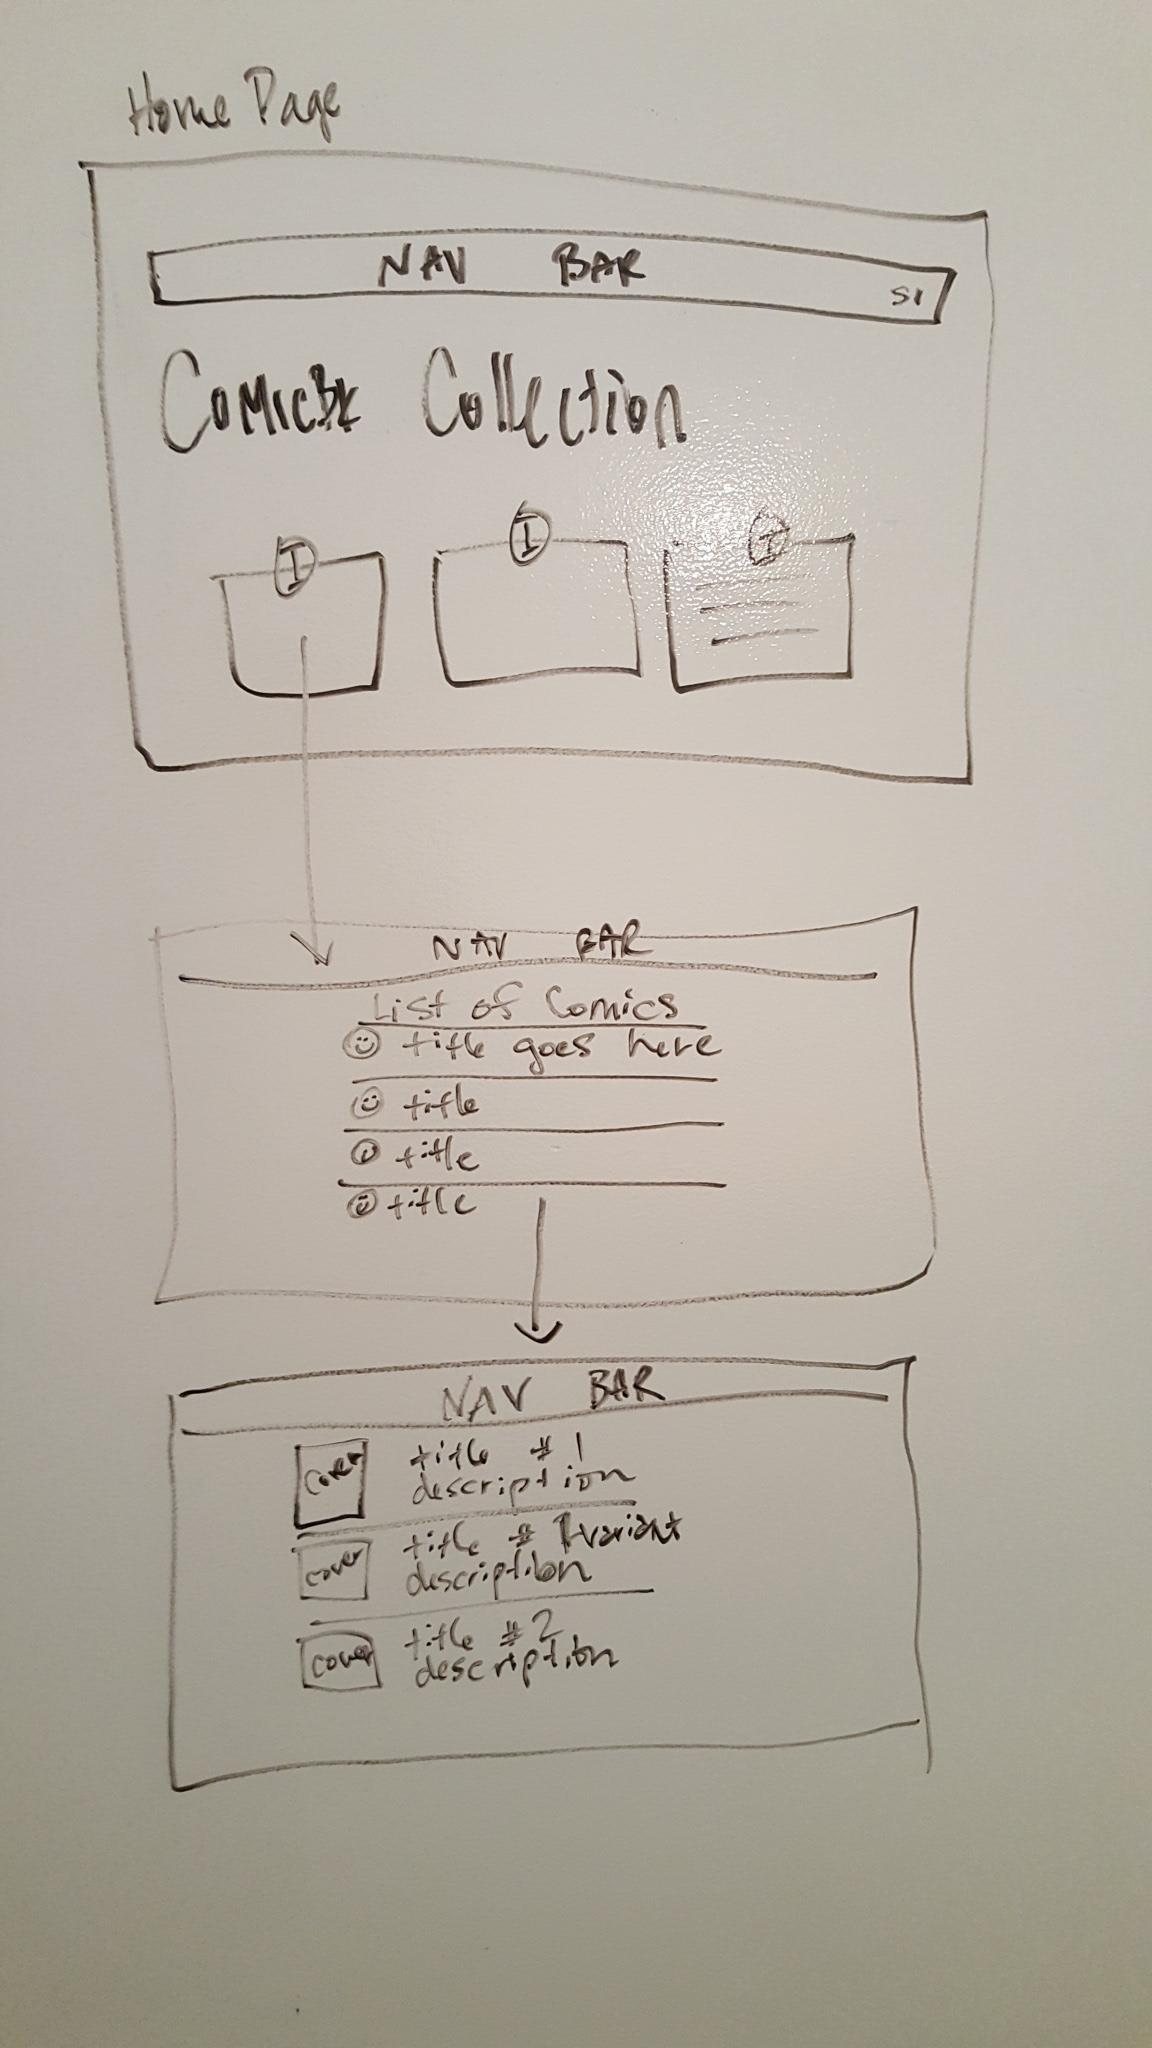 Home Page
NAV BAR
SI
ComicBk Collection
I
I
I
NAV BAR
List of Comics
title goes here
title
title
title
NAV BAR
cover
title # 1
description
cover
title # 1 variant
description
cover
title # 2
description